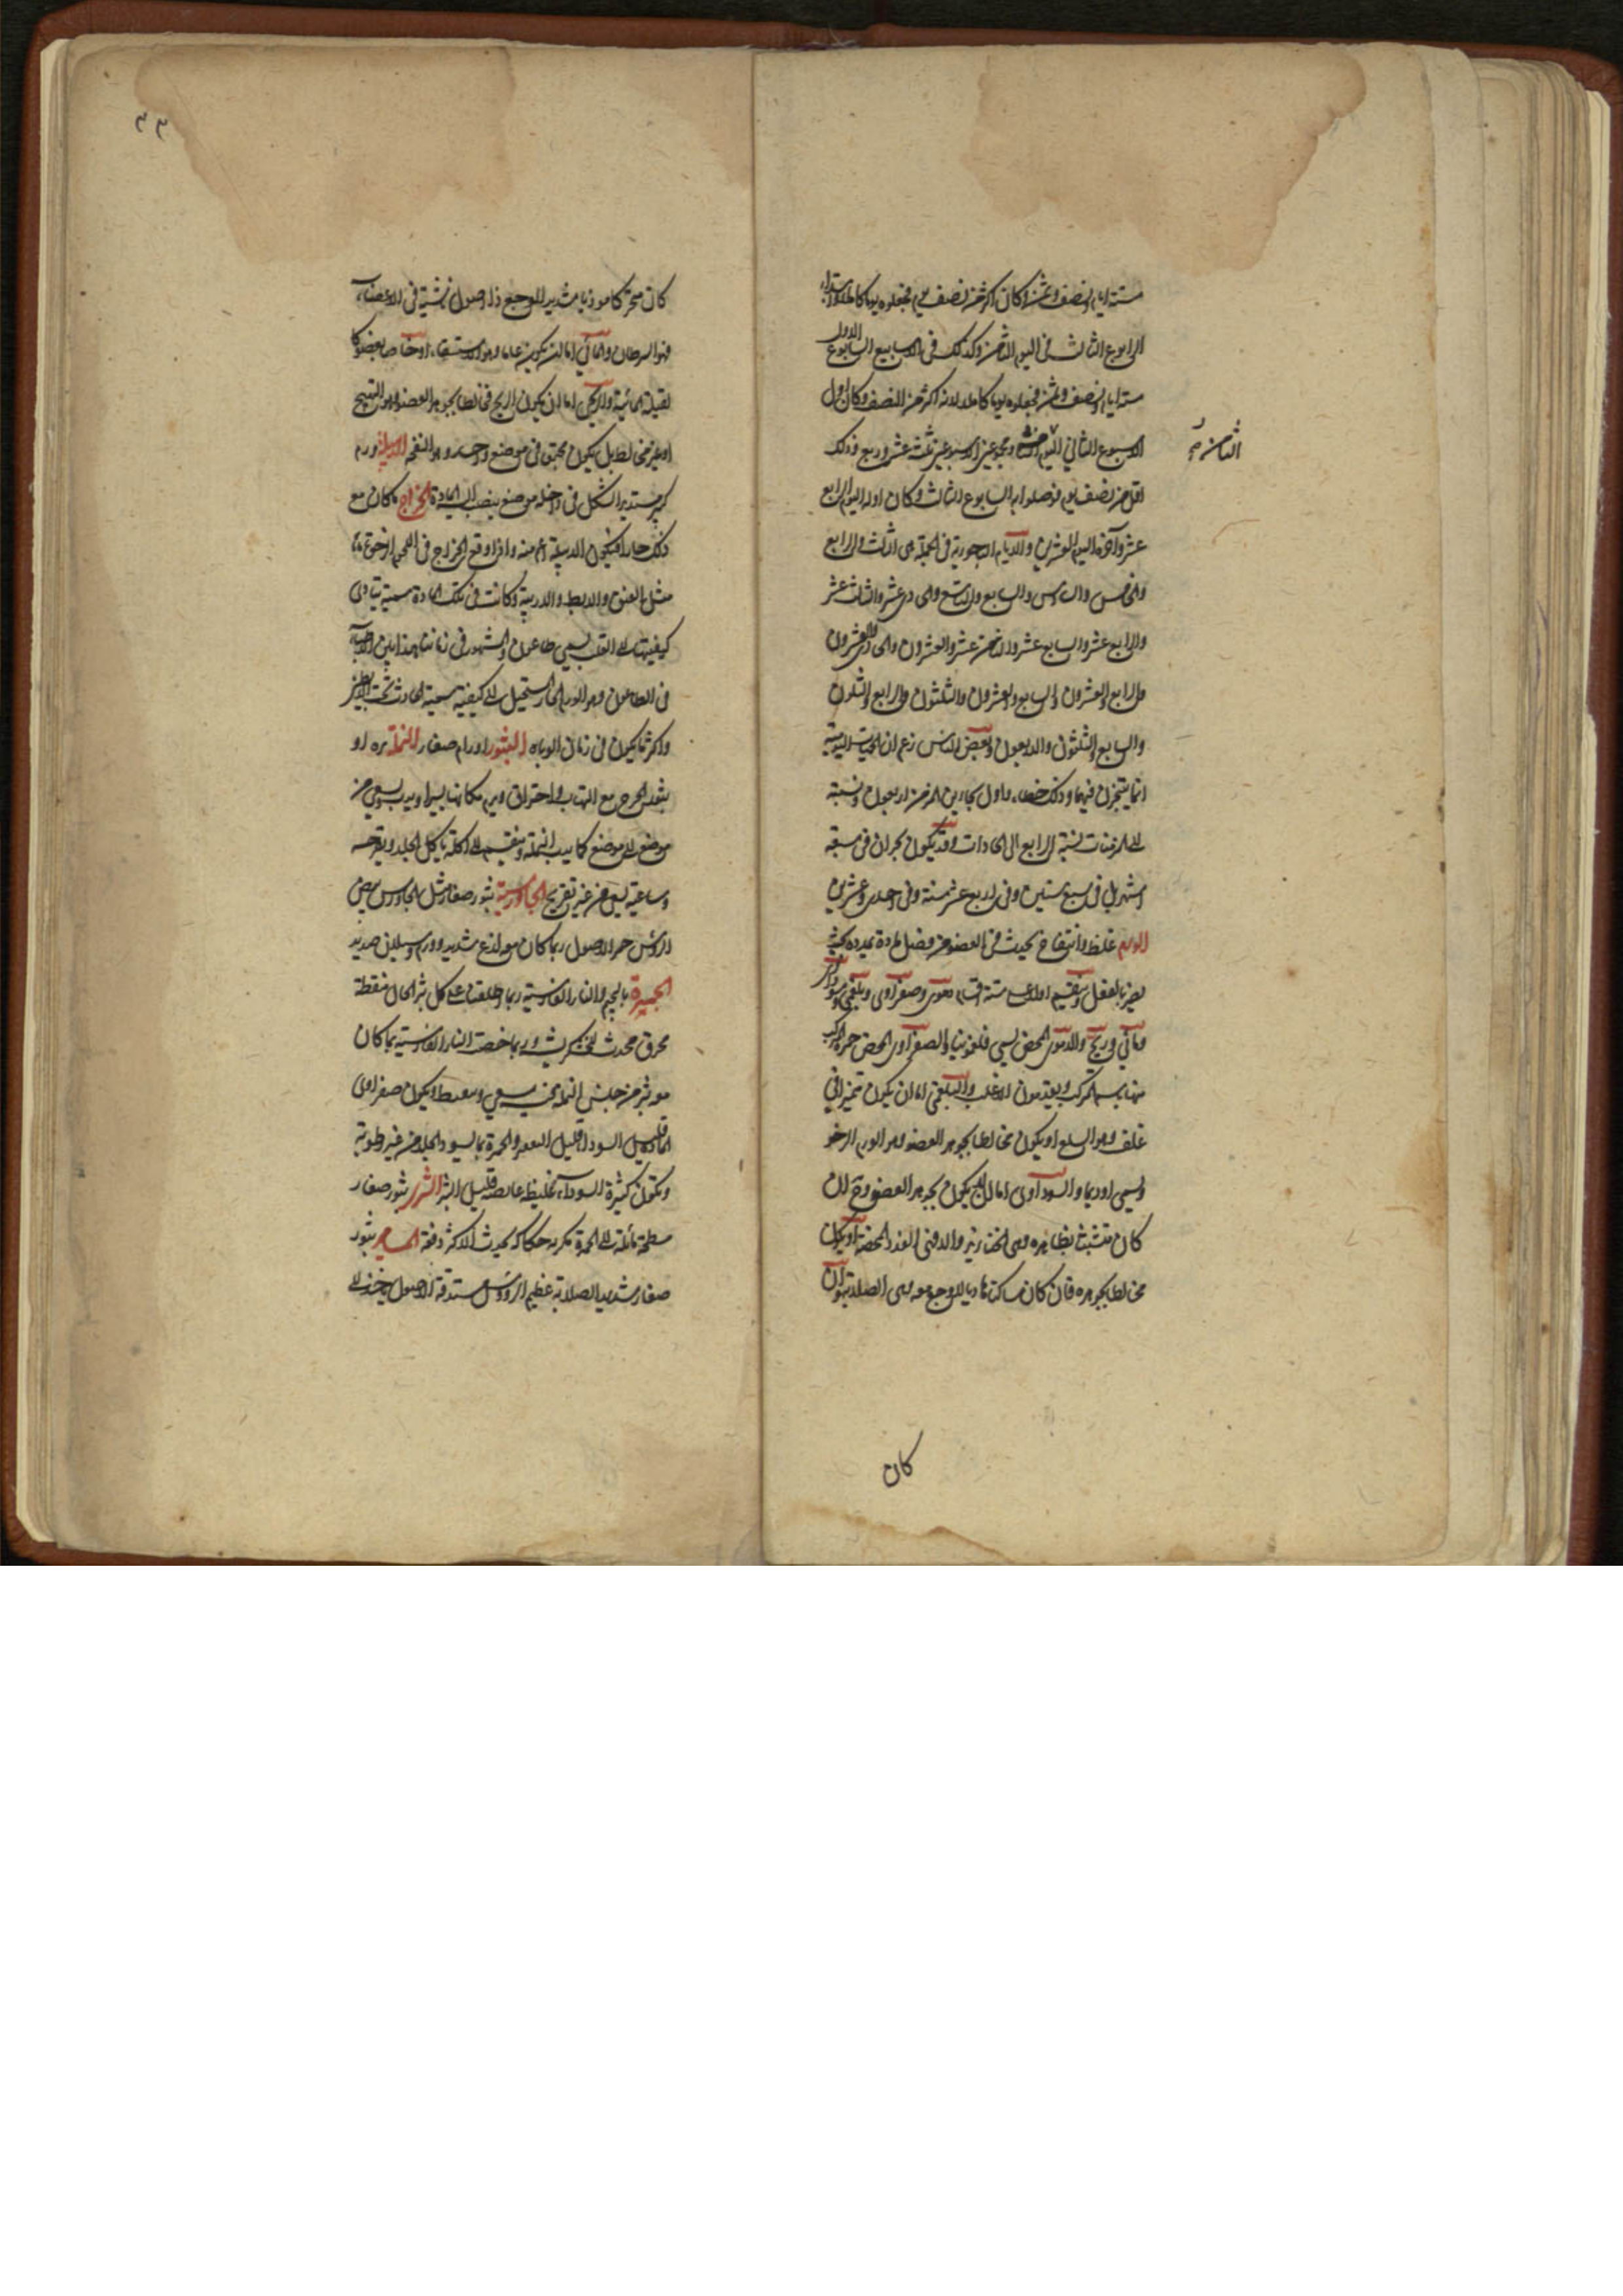 ستة ايام ونصف وثمن وكان اكثر من نصف يوم فجعلوه يوما كاملا وابتداء
الرابوع الثالث في اليوم الثامن وكذلك في الاسابيع السابوع الاول
ستة ايام ونصف وثمن فجعلوه يوما كاملا لانه اكثر من النصف وكان اول
الاسبوع الثاني اليوم الثامن ومجموع الاسبوعين ثلثة عشر وربع وذلك
الثامن
اقل من نصف يوم فوصلوا به السابوع الثالث وكان اوله اليوم الرابع
عشر وآخره اليوم العشرين والايام الباحورية في الجملة هي الثالث والرابع
والخامس والسادس والسابع والتاسع والحادي عشر والثالث عشر
والرابع عشر والسابع عشر والثامن عشر والعشرون والحادي والعشرون
والرابع والعشرون والسابع والعشرون والثلثون والرابع والثلثون
والسابع والثلثون والاربعون وبعض الناس زعم ان
فيهما وذلك خطاء واول بحارين المزمن اربعون ونسبته
الى المزمنات نسبة الرابع الى الحادات وقد يكون بحران في سبعة
اشهر بل في سبع سنين وفي اربع عشر سنة وفي احدى وعشرين
الورم غلظ وانتفاخ يحدث في العضو من فضل مادة تمدده
يضر بالفعل وينقسم اولا على ستة اقسام دموي وصفراوي وبلغمي وسوداوي
ومائي وريحي والدموي المحض يسمى فلغمونيا والصفراوي المحض حمرة والمركب
منهما باسم المركب ويقدمون الاغلب والبلغمي اما ان يكون متميزا في
غلف وهو السلع او يكون مخالطا بجوهر العضو وهو الورم الرخو
ويسمى اوذيما والسوداوي اما ان لا يكون بجوهر العضو وح ان
كان متشبثا بظاهره وهي الخنازير والا فهي الغدد المحضة او يكون
مخالطا بجوهره فان كان ساكنا هاديا لا وجع معه وهي الصلابة وان
كان
٣٣
كان متحركا موذيا شديد الوجع ذا اصول ناشبة في الاعضاء
فهو السرطان والمائي اما ان يكون عاما وهو الاستسقاء او خاصا بعضو
لقيلة المائية والريحي اما ان يكون الريح مخالطا بجوهر العضو وهو التهيج
او غير مخالط بل يكون محتبس في موضع واحد وهو النفخة الدبيلة ورم
كبير مستدير الشكل في داخله موضع ينصب اليه المادة الخراج ما كان مع
ذلك حارا فيكون الدبيلة اعم منه واذا وقع الخراج في اللحم الرخوة
مثل العنق والابط والاربية وكانت في تلك المادة سمية يتادى
كيفيتها الى القلب يسمى طاعون والمشهور في زماننا هذا بين الاطباء
في الطاعون وهو الورم الحار المستحيل الى كيفية سمية الحادث تحت الابط
واكثر ما يكون في زمان الوباء البثور اورام صغار النملة بثرة او
بثور تخرج مع التهاب واحتراق ويرم مكانها يسيرا ويدب ويسعى من
موضع الى موضع كما يدب النملة وينقسم الى اكلة ياكل الجلد ويقرحه
وساعية يسعى من غير تقريح الجاورسية بثور صغار مثل الجاورس بيض
الرؤس حمر الاصول ربما كان معه لذع شديد وورم وسيلان صديد
الجمرة بالجيم والنار الفارسية ربما اطلقت على كل بثر اكال منفط
محرق محدث خشكريشة وربما خصت النار الفارسية بما كان
مع بثر من جنس النملة يسعى وينفط ويكون صفراوي
المادة قليل السودا قليل التقعر والجمرة بما يسود الجلد من غير رطوبة
ويكون كثيرة السوداء غليظة غائصة قليل البثر الشرى بثور صغار
مسطحة مائلة الى الحمرة مكربة حكاكة يحدث في الاكثر دفعة المسامير بثور
صغار شديد الصلابة عظيم الرؤس مستدقة الاصول